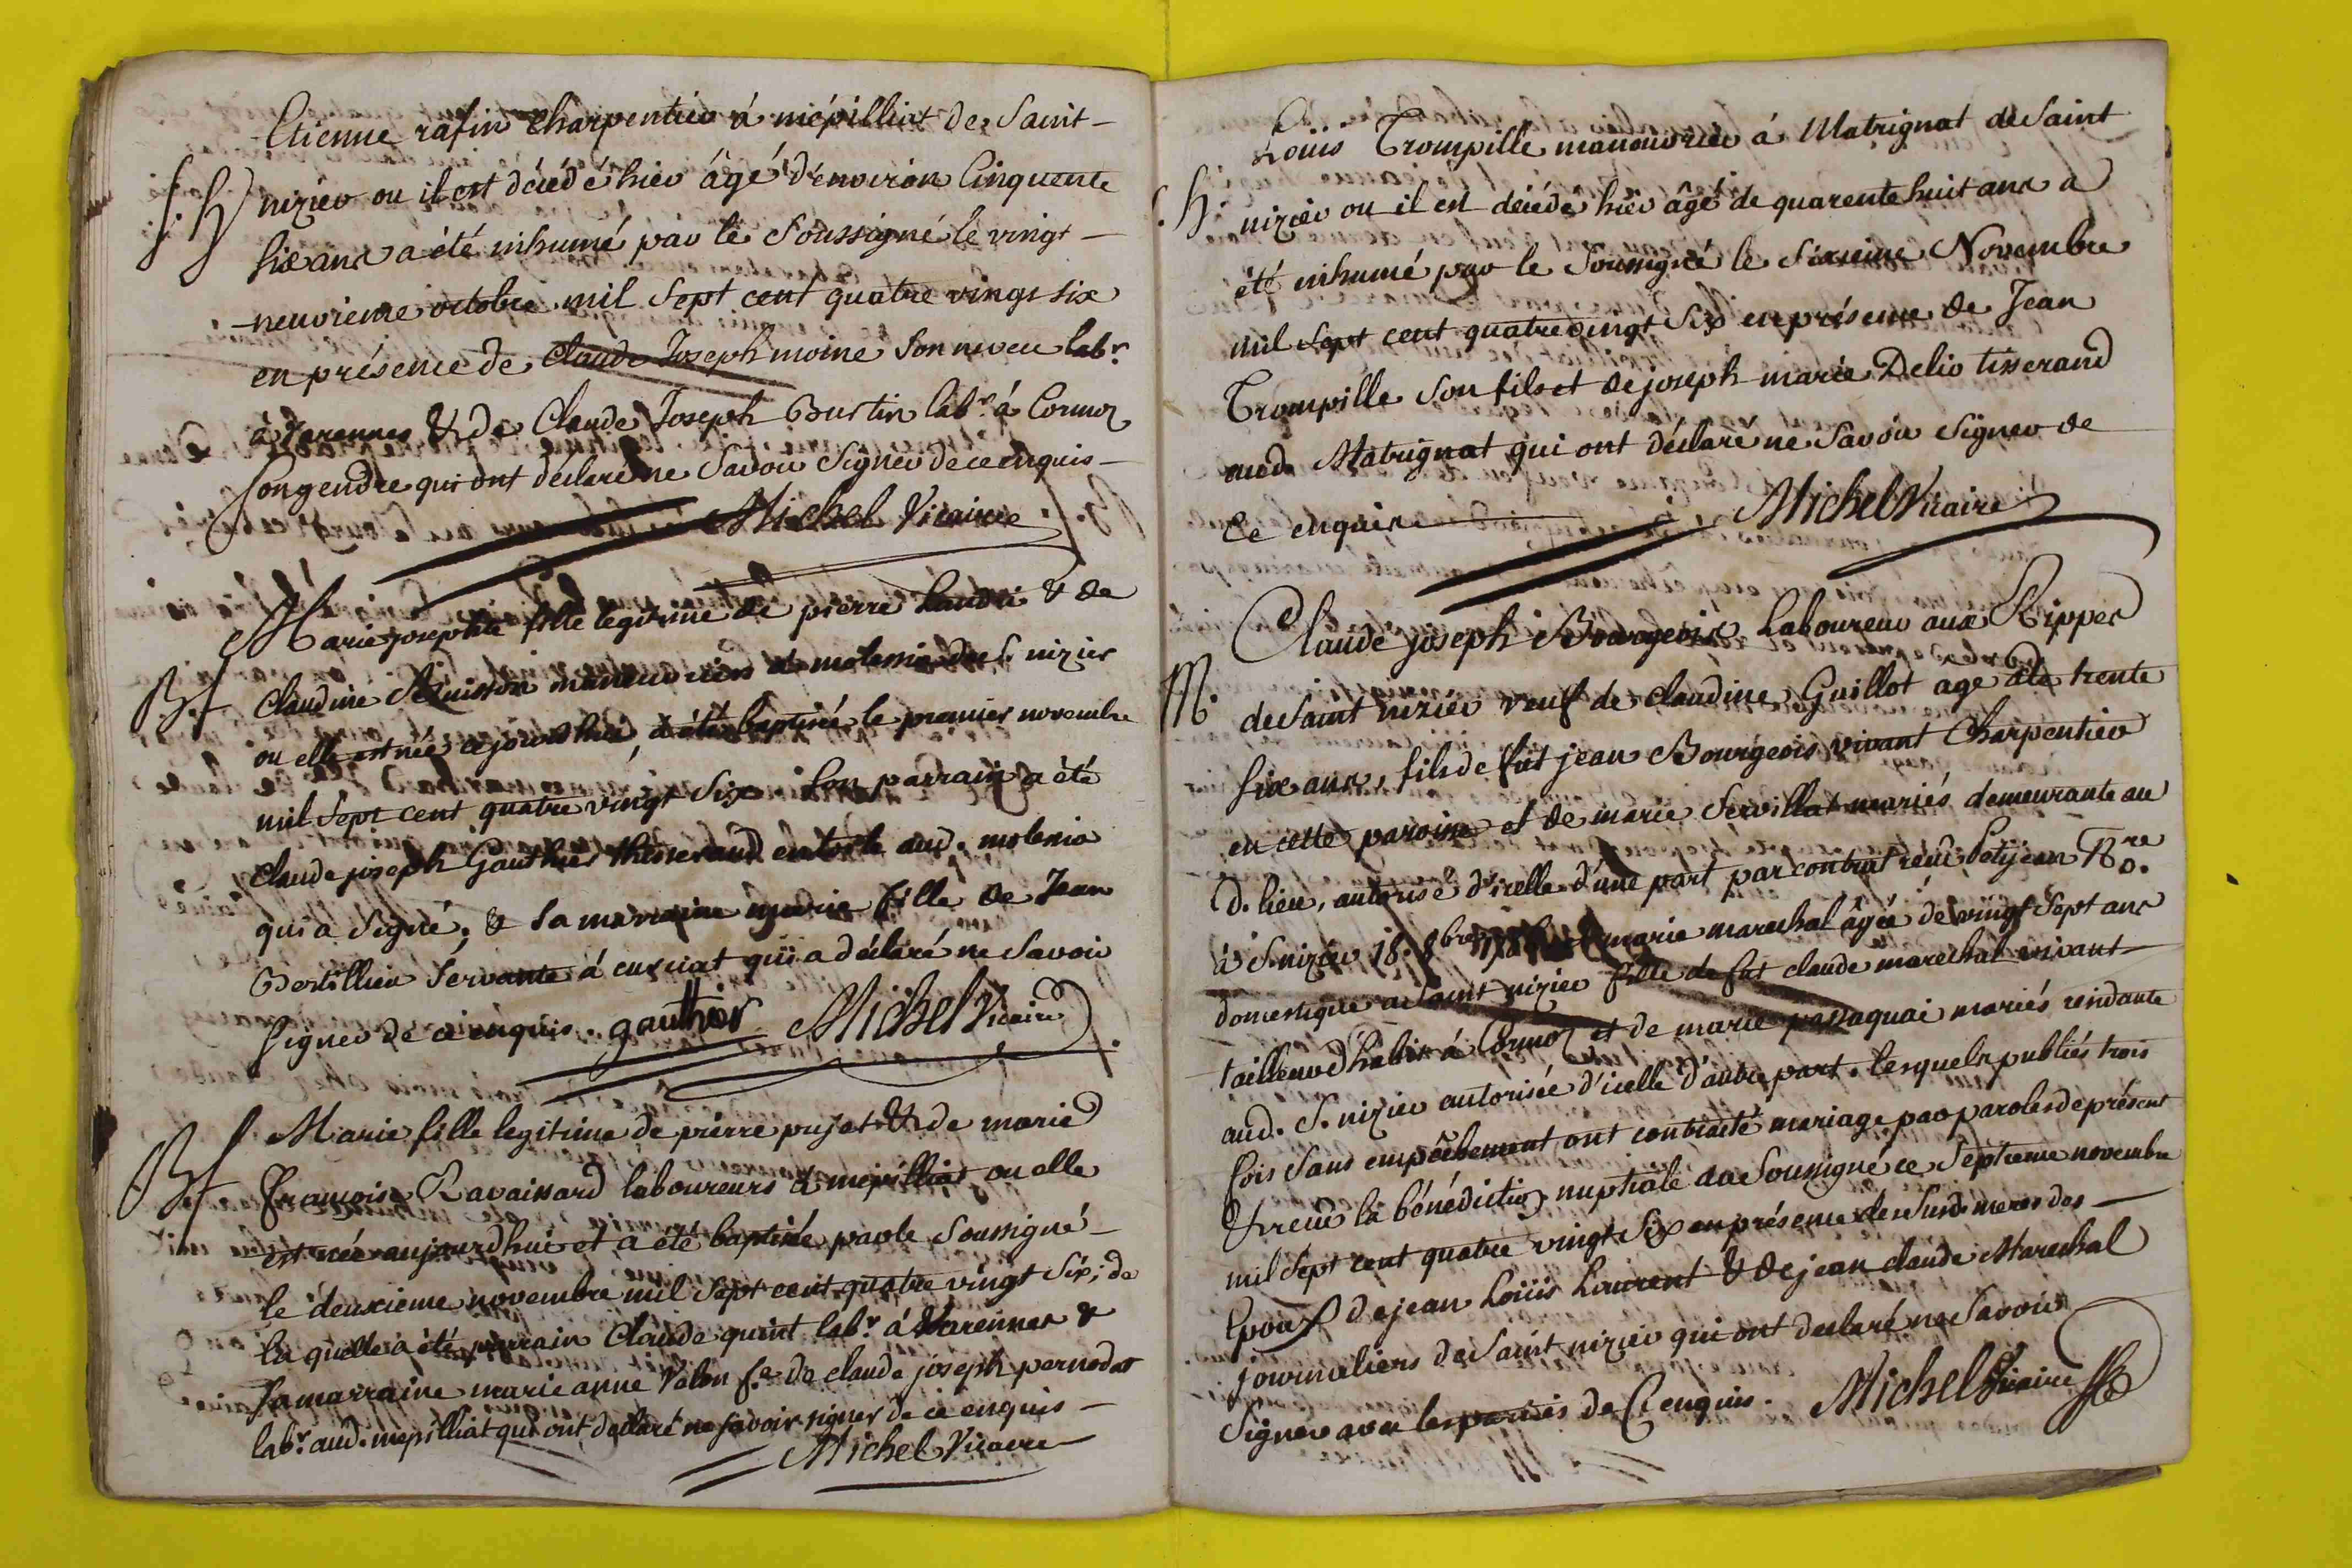 Etienne rafin Charpentier á mépilliat de Saint-
S. h nizier ou il est décédé hier âgé d'environ Cinquente
six ans a été inhumé par le Soussigné le vingt-
neuvieme octobre mil Sept cent quatre vingt six
en présence de Claude Joseph moine Son neveu labr.
à Varennes & de Claude Joseph Burtin labr. á Cormoz
Son gendre qui ont déclaré ne Savoir Signer de ce enquis-
Michel Vicaire
Marie josephte fille legitime de pierre Laudri & de
B. f Claudine manouvriers à molenia de S. nizier
ou elle est née ce jourd'hui, à été baptisée le premier novembre
mil Sept cent quatre vingt Six. Son parrain a été
Claude joseph Gauthier thisserand en toile aud. molenia
qui a Signé, & Sa marraine marie fille de Jean
Bertillier Servante á curciat qui a déclaré ne Savoir
Signer de ce enquis. gauthier Michel Vicaire
Marie fille legitime de pierre pujet & de marie
B. f françoise Ravaissard laboureurs à mépilliat ou elle
est née aujourdhui et a été baptisée par le Soussigné-
le deuxieme novembre mil Sept cent quatre vingt Six; de
la quelle a été parrain Claude quint labr. á Varennes &
Sa marraine marie anne Velon fe. de claude joseph pernodat
labr. aud. mépilliat qui ont déclaré ne savoir signer de ce enquis-
Michel Vicaire
Loüis Trompille manouvrier á Matrignat de Saint
S. h. nizier ou il est décédé hier âgé de quarente huit ans a
été inhumé par le Soussigné le Sixieme Novembre
mil Sept cent quatre vingt Six en présence de Jean
Trompille Son fils et de joseph marie Delio tisserand
aud. Matrignat qui ont déclaré ne Savoir Signer de
Ce enquis. Michel Vicaire
Claude joseph Bourgeois Laboureur aux Rippes
M. de Saint nizier veuf de claudine Guillot age de trente
six ans, fils de fut jean Bourgeois vivant Charpentier
en cette paroisse et de marie Servillat mariés demeurante au
d. lieu, autorisé d'icelle d'une part par contrat reçu Petijean Nre.
à S. nizier 18. 8bre 1786 & marie marechal âgée de vingt Sept ans
domestique a Saint nizier fille de fut claude marechal vivant-
tailleur d'habits á Cormoz et de marie passaquai mariés résidante
aud. S. nizier autorisée d'icelle d'autre part. lesquels publiés trois
fois Sans empêchement ont contracté mariage par paroles de présent
& reçu la bénédiction nuptiale du Soussigné ce Septieme novembre
mil Sept cent quatre vingt Six en présence des Susd. meres des-
Epoux de jean Loüis Laurent & de jean claude Marechal
journaliers de Saint nizier qui ont declaré ne Savoir
Signer avec les parties de Ce enquis. Michel Vicaire